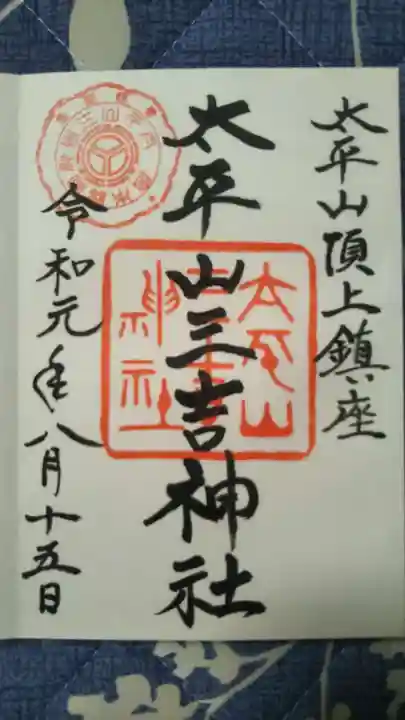 太平山頂上鎮座
太平山三吉神社
令和元年八月十五日